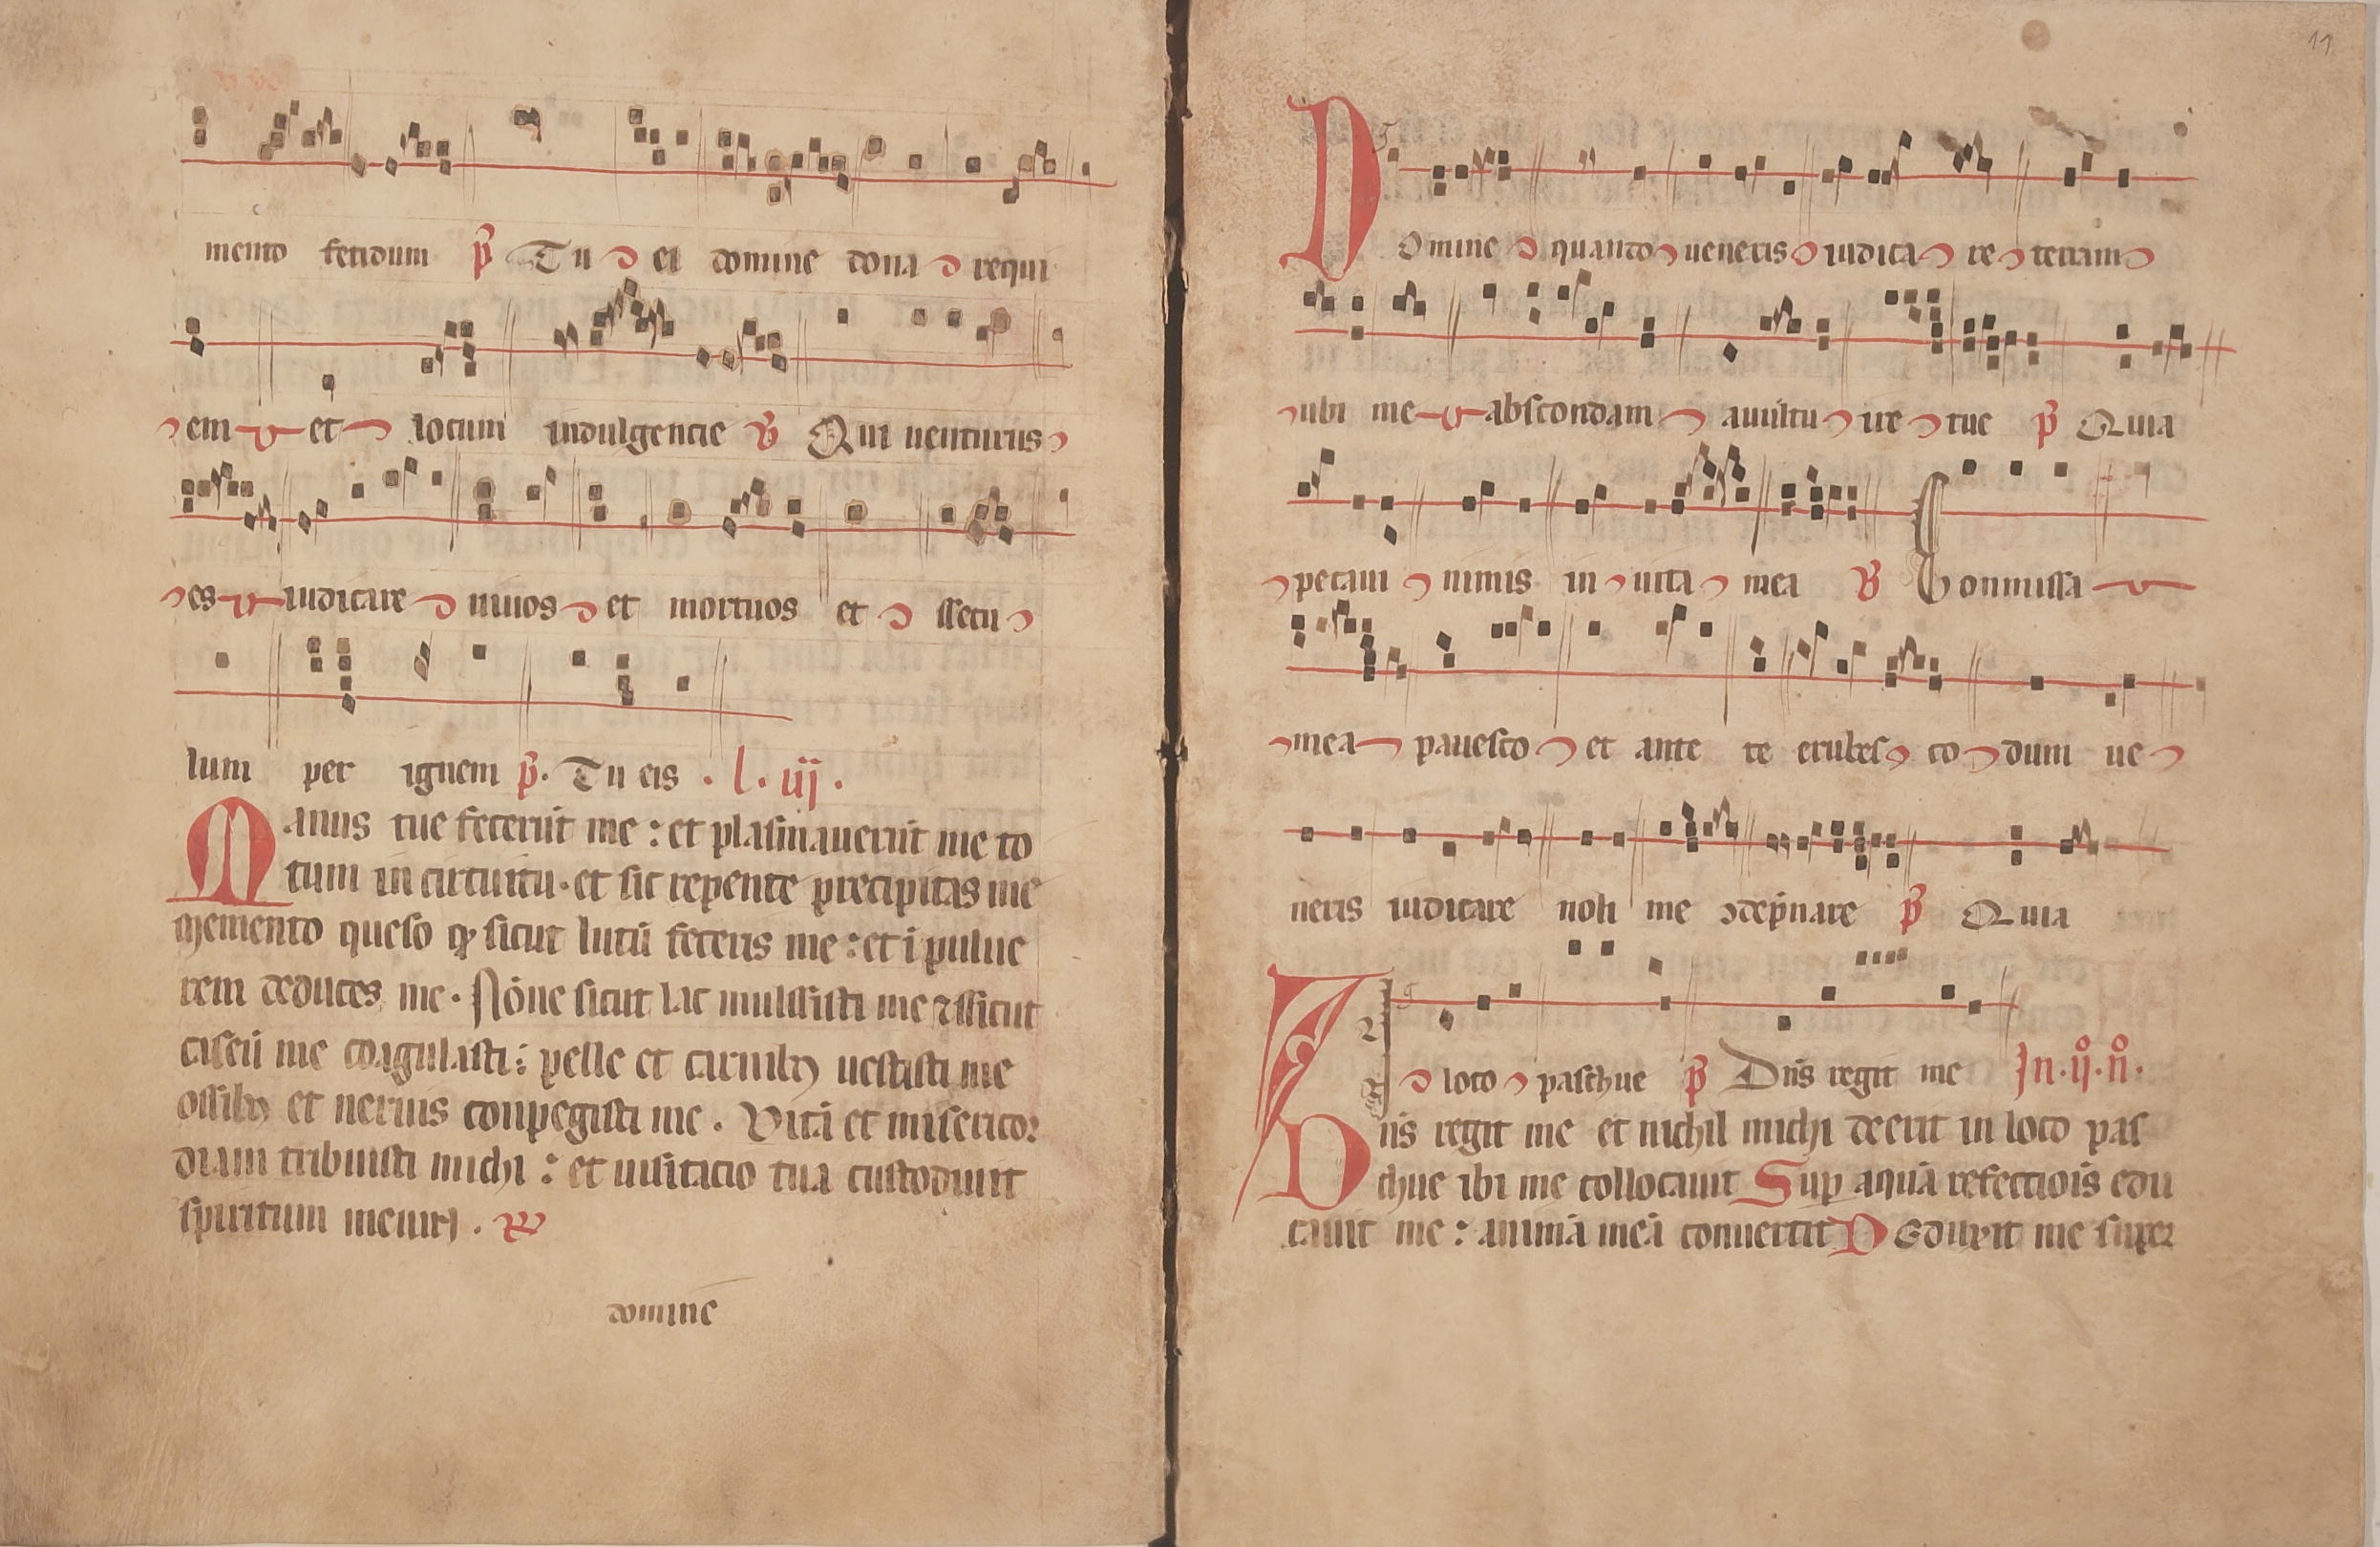 mento fetidum p̄ Tu ei domine dona requi
em et locum indulgencie ℣ Qui uenturus
es iudicare uiuos et mortuos et ssecu
lum per ignem p̄. Tu eis . l . iij .
Manus tue fecerūt me : et plasmauerūt me to
tum in circuitu . et sic repente precipitas me
Memento queso ꝙ sicut lutū feceris me : et ī pulue
rem deduces me . Nōne sicut lac mulssisti me ⁊ ssicut
caseū me coagulasti : pelle et carnibꝰ uestisti me
ossibꝰ et neruis conpegisti me . Vitā et misericor
diam tribuisti michi : et uisitacio tua custodiuit
spiritum meum .
domine
11
Domine quando ueneris iudicare terram
ubi me abscondam auultu ire tue p̄ Quia
peccaui nimis in uita mea ℣ Conmissa
mea pauesco et ante te erubesco dum ue
neris iudicare noli me ↄdēpnare p̄ Quia
In loco paschue p̄ Dn̄s regit me In . ij̊ . n̊ .
Dn̄s regit me et nichil michi deerit in loco pas
chue ibi me collocauit Sup aquā refectiōis edu
cauit me : animā meā conuertit Deduxit me super